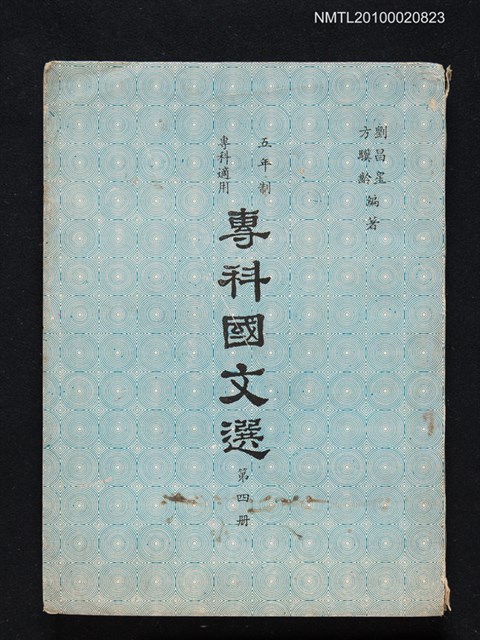 NMTL20100020823
劉昌崖
方驥齡
編著
五年制
專科適用
專科國文選
第四册